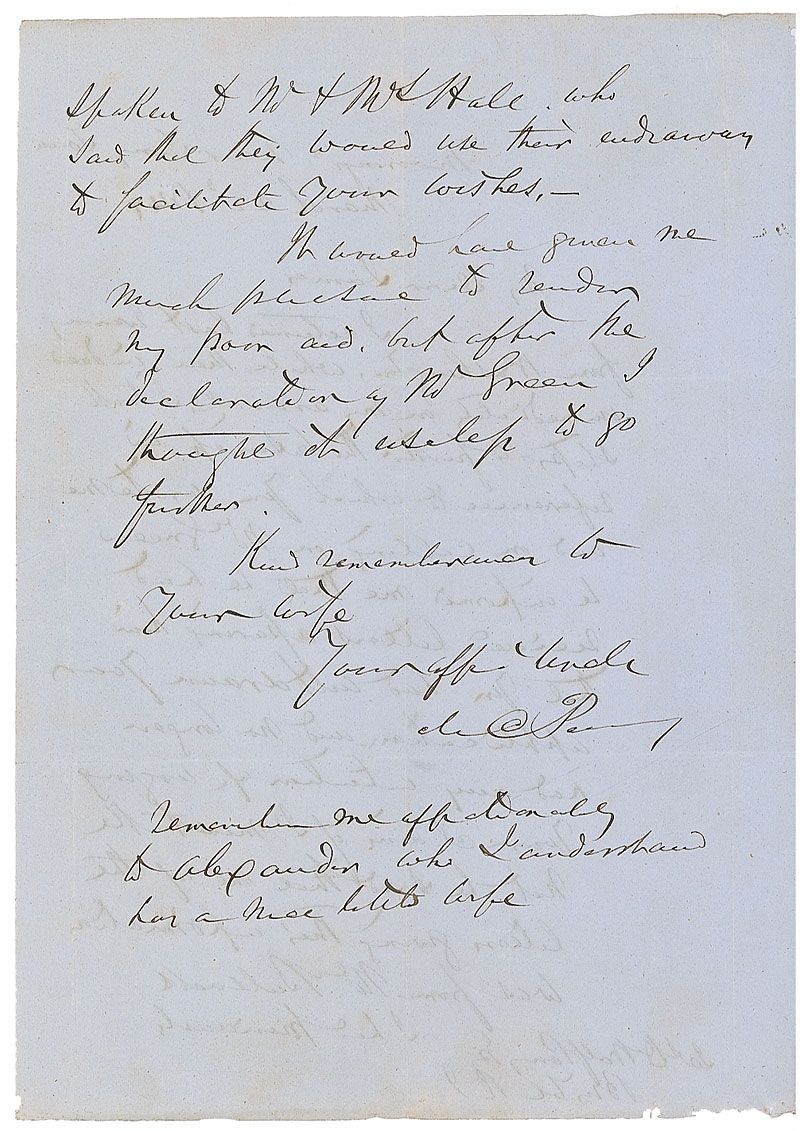 spoken to Mr & Mrs Hall. who
said that they would use their endeavors
to facilitate your wishes, —
It would have given me
much pleasure to render
my poor aid. but after the
declaration of Mr Green I
thought it useless to go
further.
Kind remembrances to
Your wife
Your affe Uncle
M C Perry
remember me affectionately
to Alexander who I understand
has a nice little wife